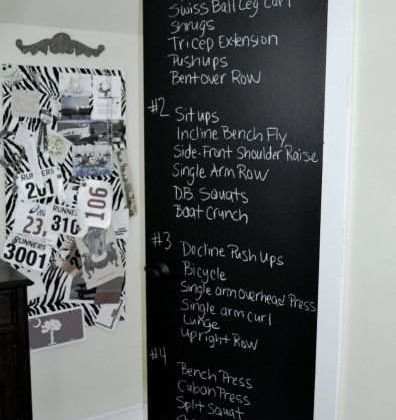 Swiss Ball Leg Curl
Shrugs
Tricep Extension
Pushups
Bentover Row
#2 Situps
Incline Bench Fly
Side-Front Shoulder Raise
Single Arm Row
DB Squats
Boat Crunch
#3 Decline Push Ups
Bicycle
Single arm overhead Press
Single arm curl
Lunge
Upright Row
#4 Bench Press
Cuban Press
Split Squat
201
106
RUNNER
23
310
RUNNERS
3001